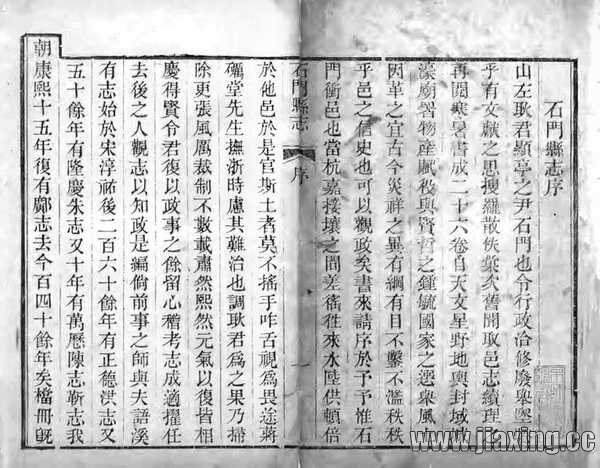 石門縣志序
山左耿君顯亭之尹石門也令行政洽修廢舉墜
乎有文獻之思搜羅散佚彙次舊聞取邑志續理之
再閱寒暑書成二十六卷自天文星野地輿封域
濠廟署物產賦役與賢哲之鍾毓國家之選舉風
因革之宜古今災祥之異有綱有目不繫不濫秩秩
乎邑之信史也可以觀政矣書來請序於予予惟石
門衝邑也當杭嘉接壤之間差徭徃來水陸供頓倍
石門縣志 序
於他邑於是官斯土者莫不搖手咋舌視為畏途蔣
礪堂先生撫浙時慮其難治也調耿君為之果乃掃
除更張風厲裁制不數載肅然熙然元氣以復皆相
慶得賢令君復以政事之餘留心稽考志成適擢任
去後之人觀志以知政是編倘前事之師與夫語溪
有志始於宋淳祐後二百六十餘年有正德洪志又
五十餘年有隆慶朱志又十年有萬曆陳志靳志我
朝康熙十五年復有鄺志去今百四十餘年矣檔冊旣
www.jiaxing.cc